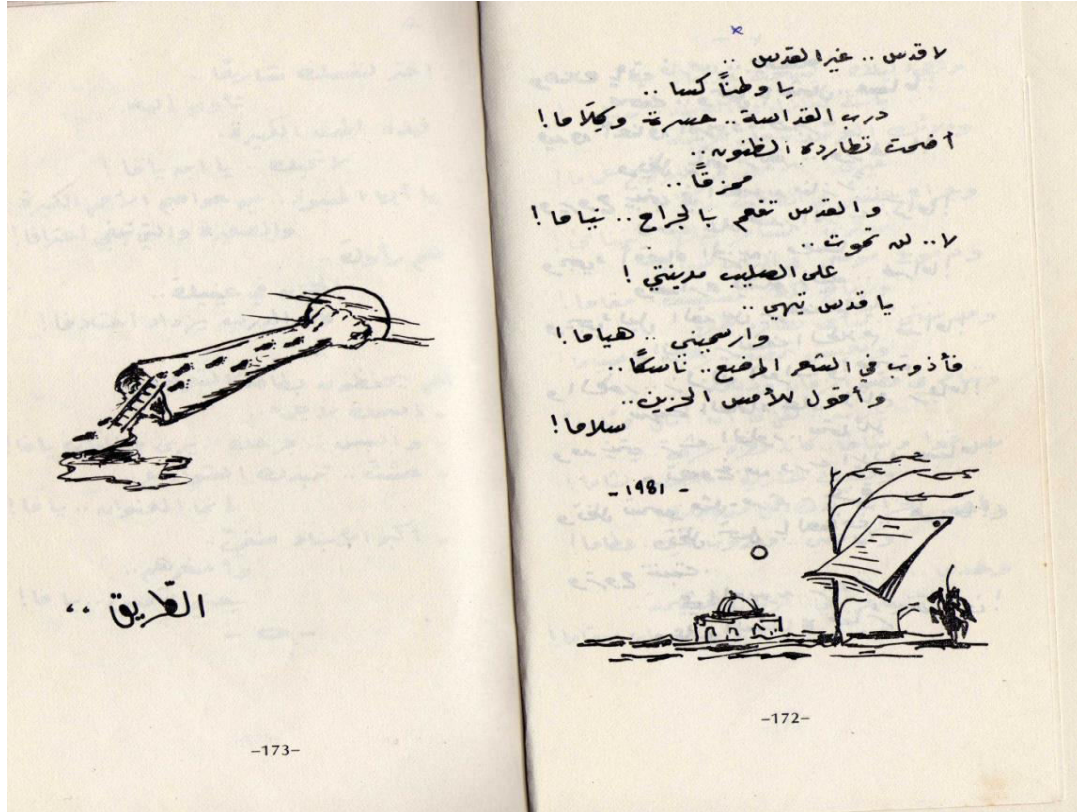 لا قدس .. غير القدس ..
يا وطناً كسا ..
درب القداسة .. حسرة وكِلَاما !
أضحت تطارده الظنون ..
ممزقاً ..
والقدس تفعم بالجراح .. نياما !
لا .. لن تموت ..
على الصليب مدينتي !
يا قدس تيهي ..
وارسميني .. هياما !
فأذوب في الشعر المرصّع .. ناسكاً ..
وأقول للأمس الحزين ..
سلاما !
- 1981 -
–172–
الطّريق ..
–173–